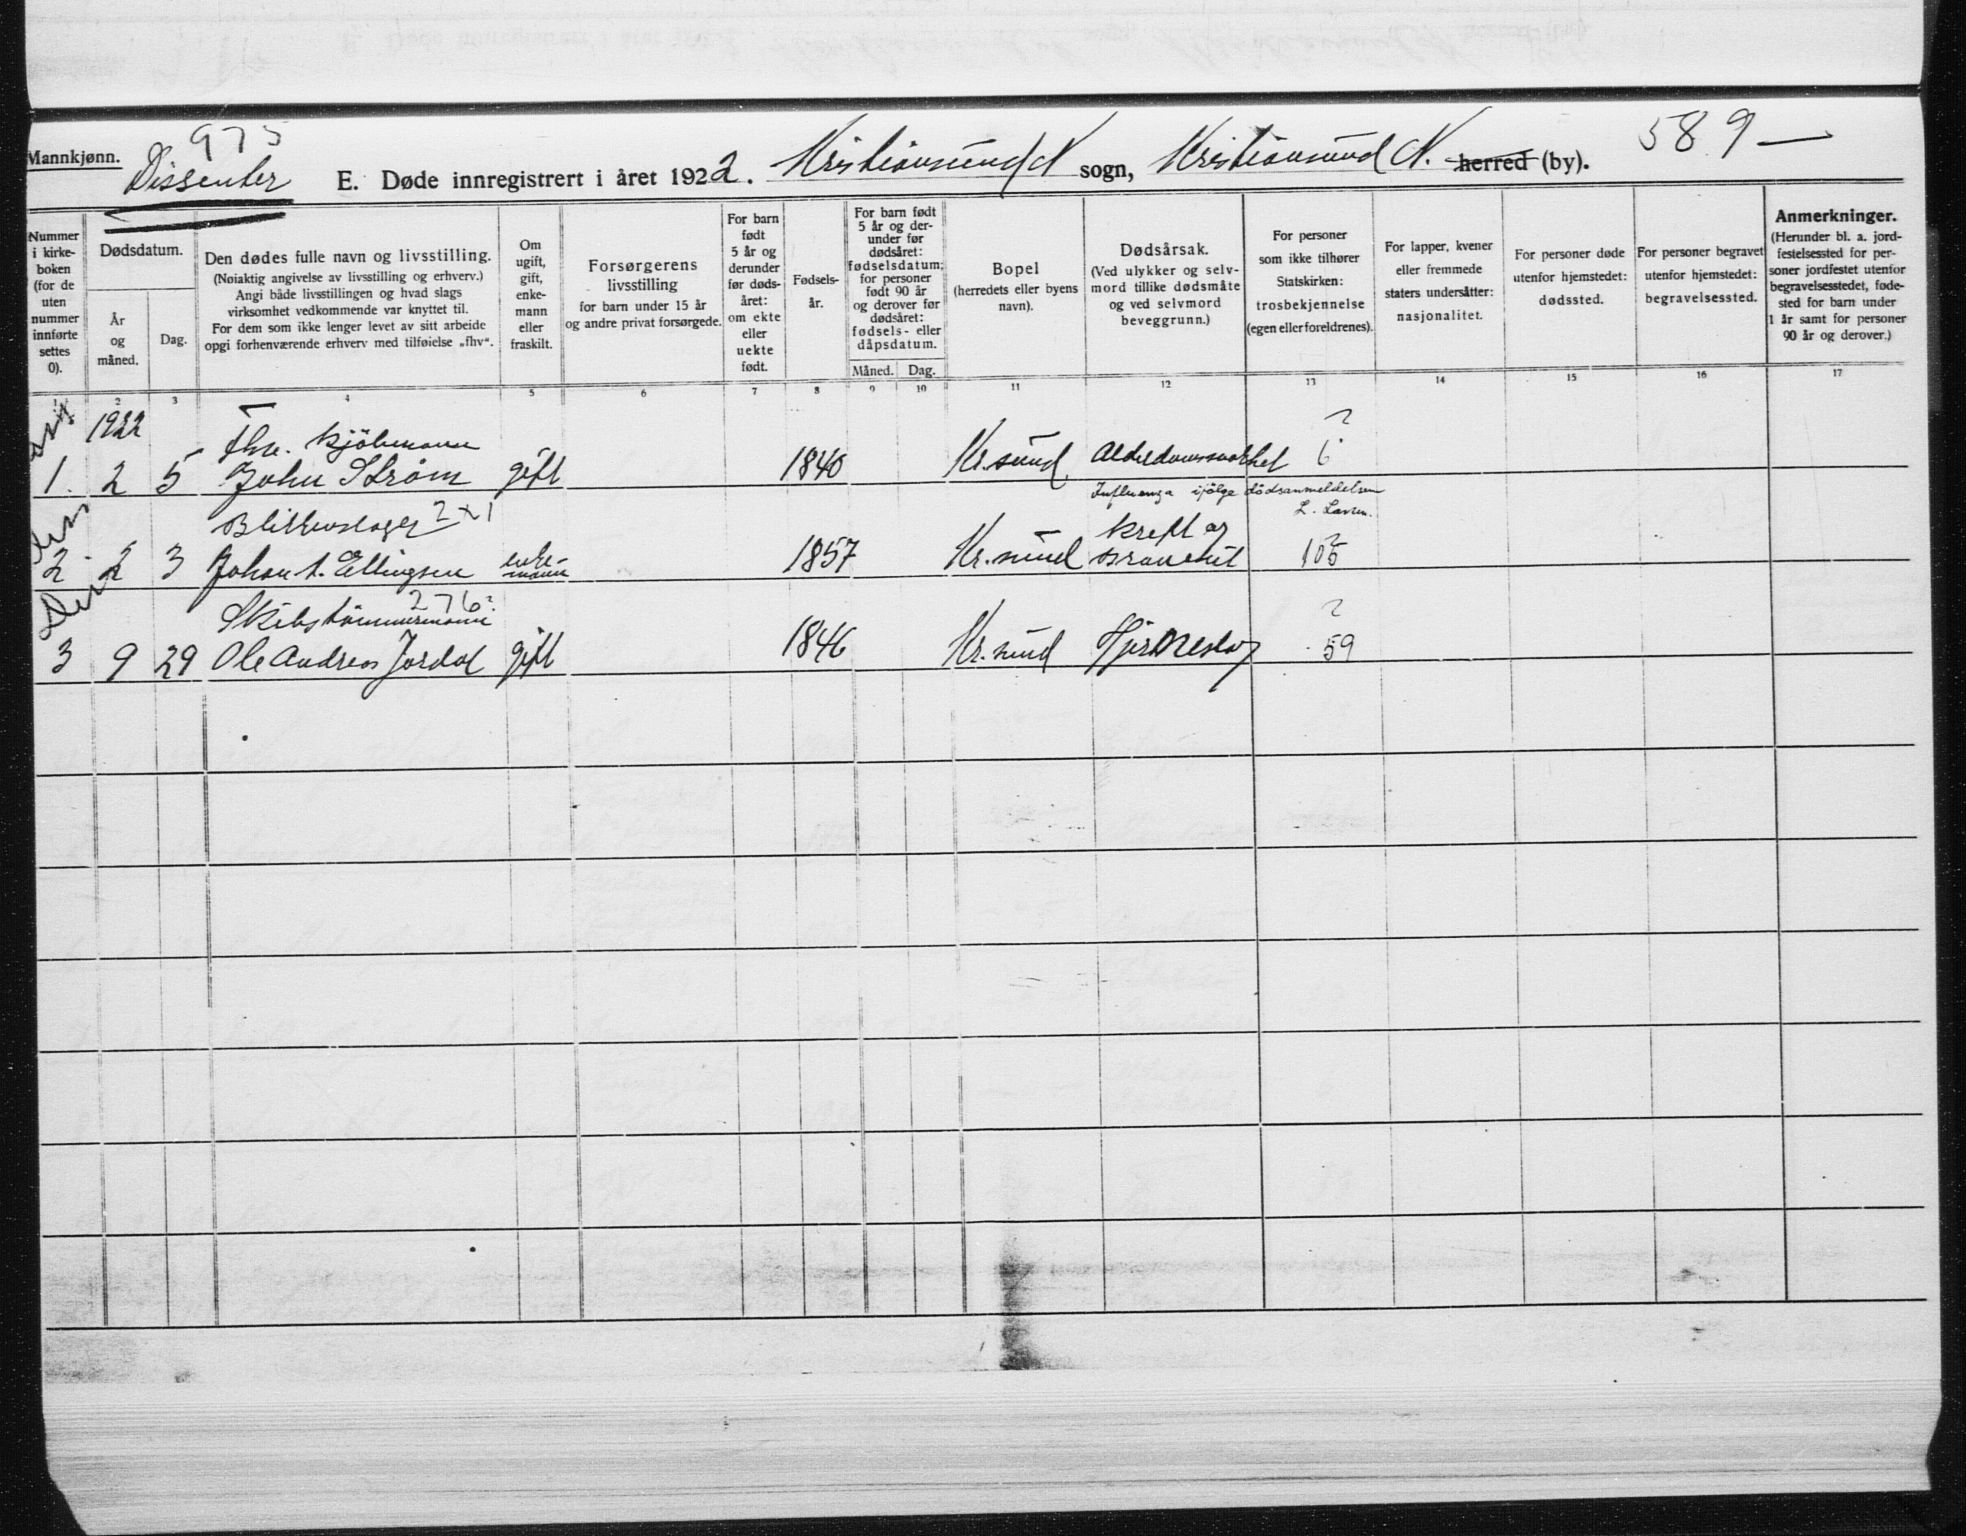 975
589 —
Mannkjønn.
Dissenter
E. Døde innregistrert i året 1922. Kristiansund N sogn, Kristiansund N. herred (by).
Nummer i kirke-boken (for de uten nummer innførte settes 0).
Dødsdatum.
År og måned.
Dag.
Den dødes fulle navn og livsstilling.
(Nøiaktig angivelse av livsstilling og erhverv.)
Angi både livsstillingen og hvad slags
virksomhet vedkommende var knyttet til.
For dem som ikke lenger levet av sitt arbeide
opgi forhenværende erhverv med tilføielse „fhv“.
Om ugift, gift, enke-mann eller fraskilt.
Forsørgerens
livsstilling
for barn under 15 år
og andre privat forsørgede.
For barn født 5 år og derunder før døds-året: om ekte eller uekte født.
Fødsels-år.
For barn født 5 år og der-under før dødsåret: fødselsdatum; for personer født 90 år og derover før dødsåret: fødsels- eller dåpsdatum.
Måned. Dag.
Bopel
(herredets eller byens
navn).
Dødsårsak.
(Ved ulykker og selv-
mord tillike dødsmåte
og ved selvmord
beveggrunn.)
For personer
som ikke tilhører
Statskirken:
trosbekjennelse
(egen eller foreldrenes).
For lapper, kvener
eller fremmede
staters undersåtter:
nasjonalitet.
For personer døde
utenfor hjemstedet:
dødssted.
For personer begravet
utenfor hjemstedet:
begravelsessted.
Anmerkninger.
(Herunder bl. a. jord-
festelsessted for per-
soner jordfestet utenfor
begravelsesstedet, føde-
sted for barn under
1 år samt for personer
90 år og derover.)
1 2 3 4 5 6 7 8 9 10 11 12 13 14 15 16 17
1922 Kjöbmann 2
1. 2 5 John Strøm gift 1840 Kr.sund Alderdomssvakhet 6
Influenza ifölge dödsanmeldelsen
L. Larsen.
Blikkenslager 2 x 1 Kreft og 2
2 2 3 Johan A. Ellingsen enke-mann 1857 Kr.sund 105
Skibstömmermann 276? 2
3 9 29 Ole Andreas Jordal gift 1846 Kr.sund Hjerneslag 59